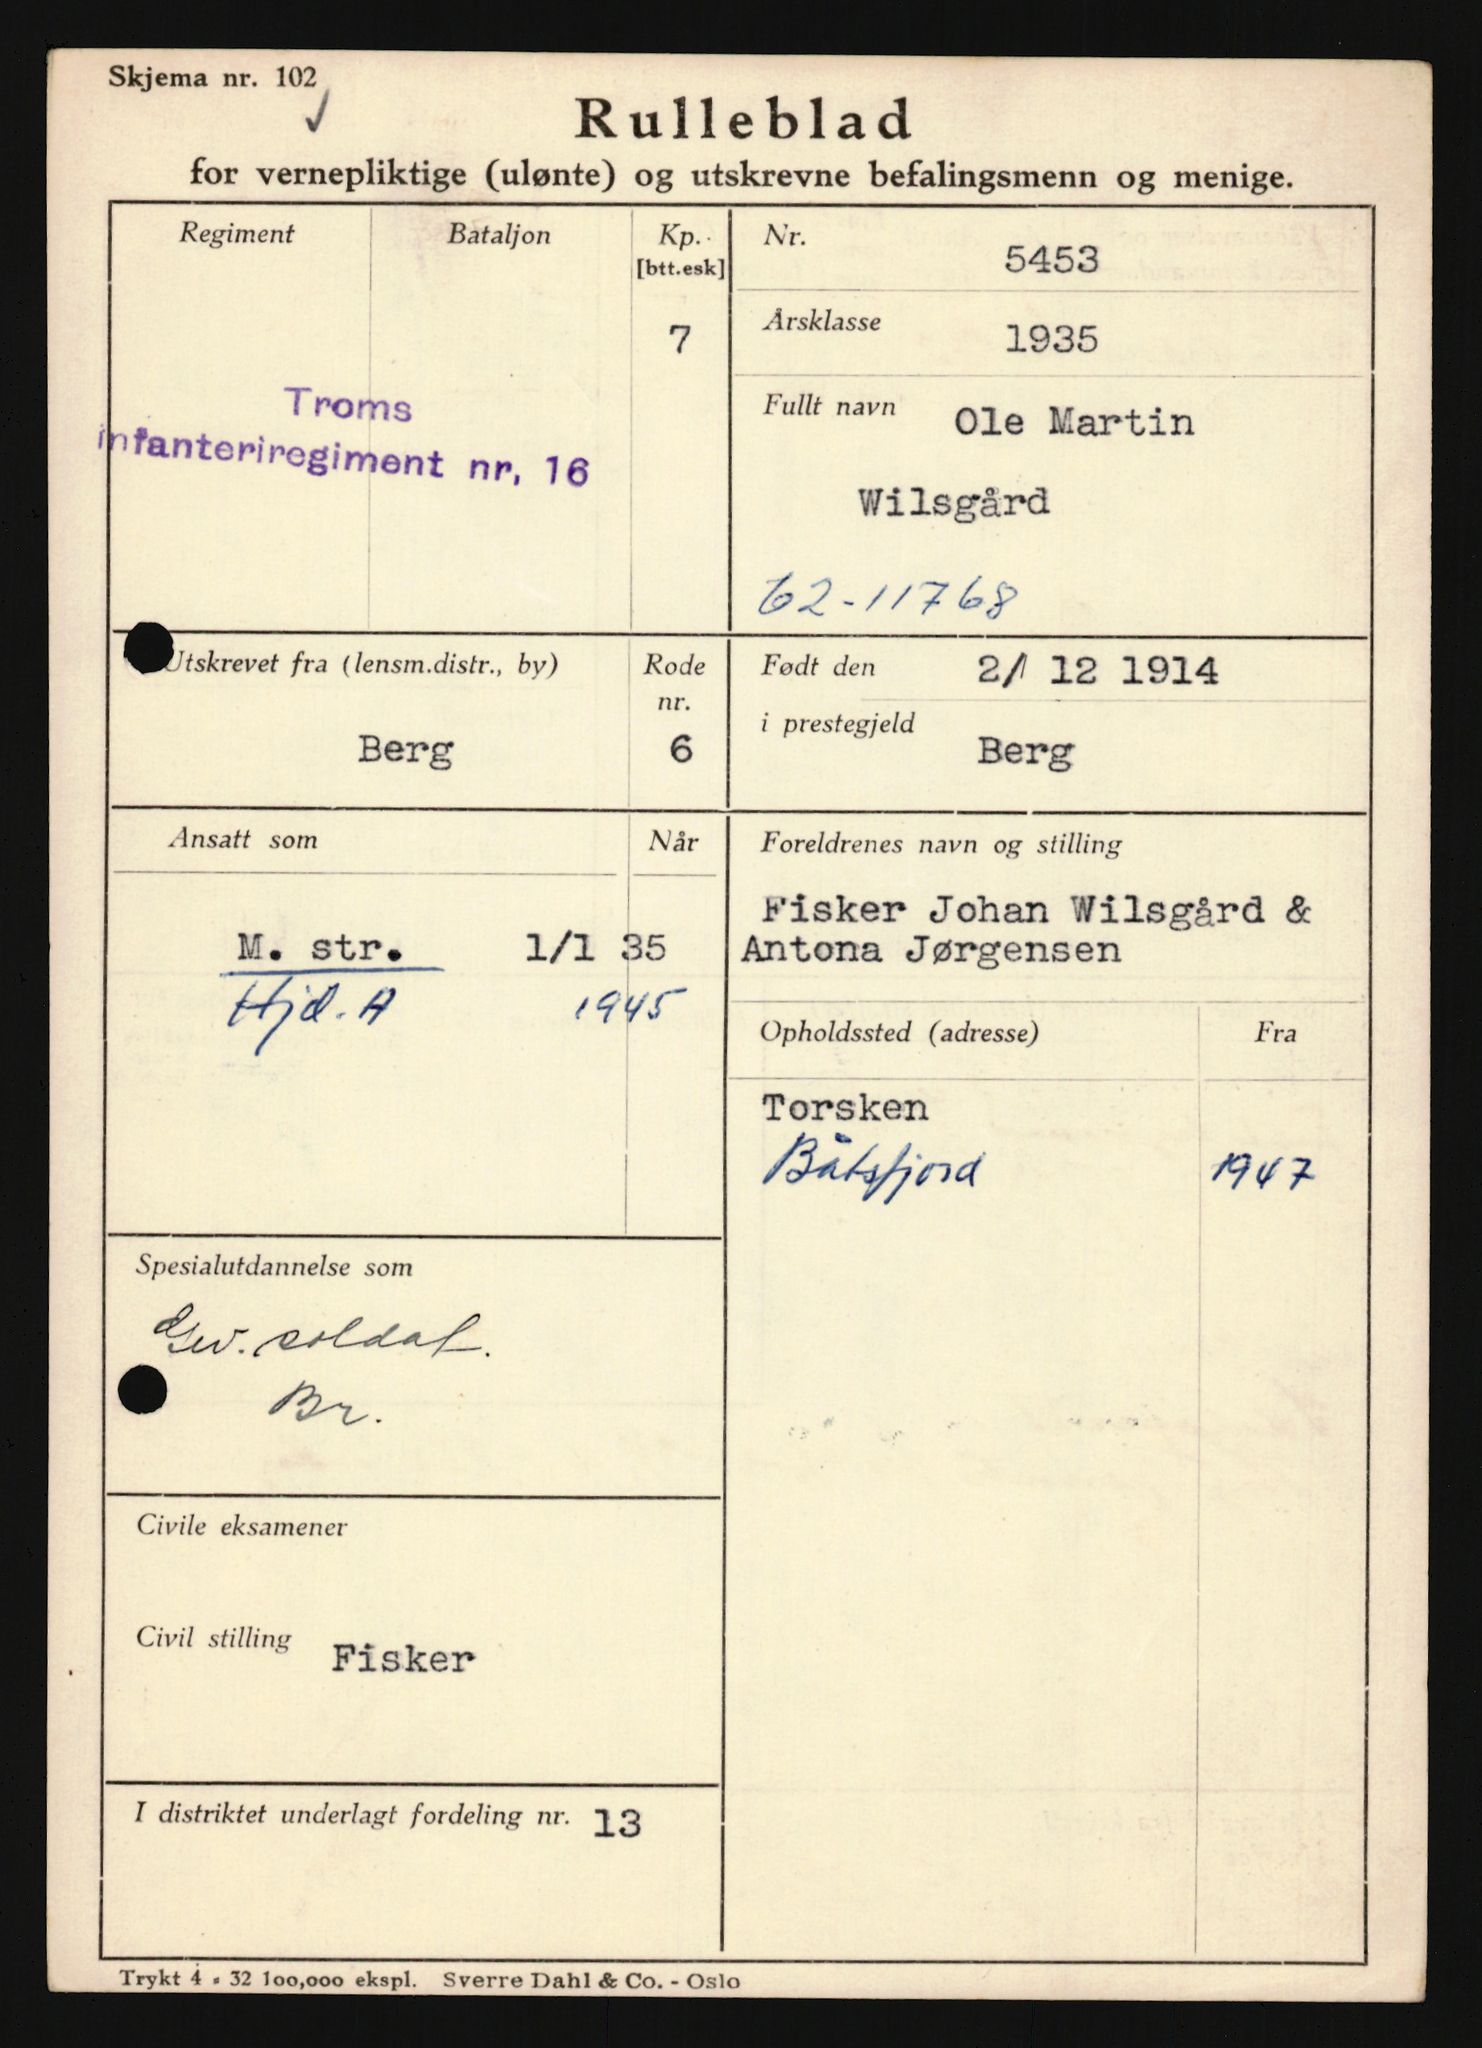 Skjema nr. 102
Rulleblad
for vernepliktige (ulønte) og utskrevne befalingsmenn og menige.
Regiment
Bataljon
Kp.
[btt.esk]
7
Troms
infanteriregiment nr. 16
Nr.
5453
Årsklasse
1935
Fullt navn Ole Martin
Wilsgård
62-11768
Utskrevet fra (lensm.distr., by)
Berg
Rode
nr.
6
Født den 2/ 12 1914
i prestegjeld
Berg
Ansatt som
Når
M. str. 1/1 35
Hjd. A 1945
Foreldrenes navn og stilling
Fisker Johan Wilsgård &
Antona Jørgensen
Opholdssted (adresse)
Fra
Torsken
Båtsfjord 1947
Spesialutdannelse som
Gev. soldat.
Br.
Civile eksamener
Civil stilling Fisker
I distriktet underlagt fordeling nr. 13
Trykt 4 - 32 100,000 ekspl. Sverre Dahl & Co. - Oslo